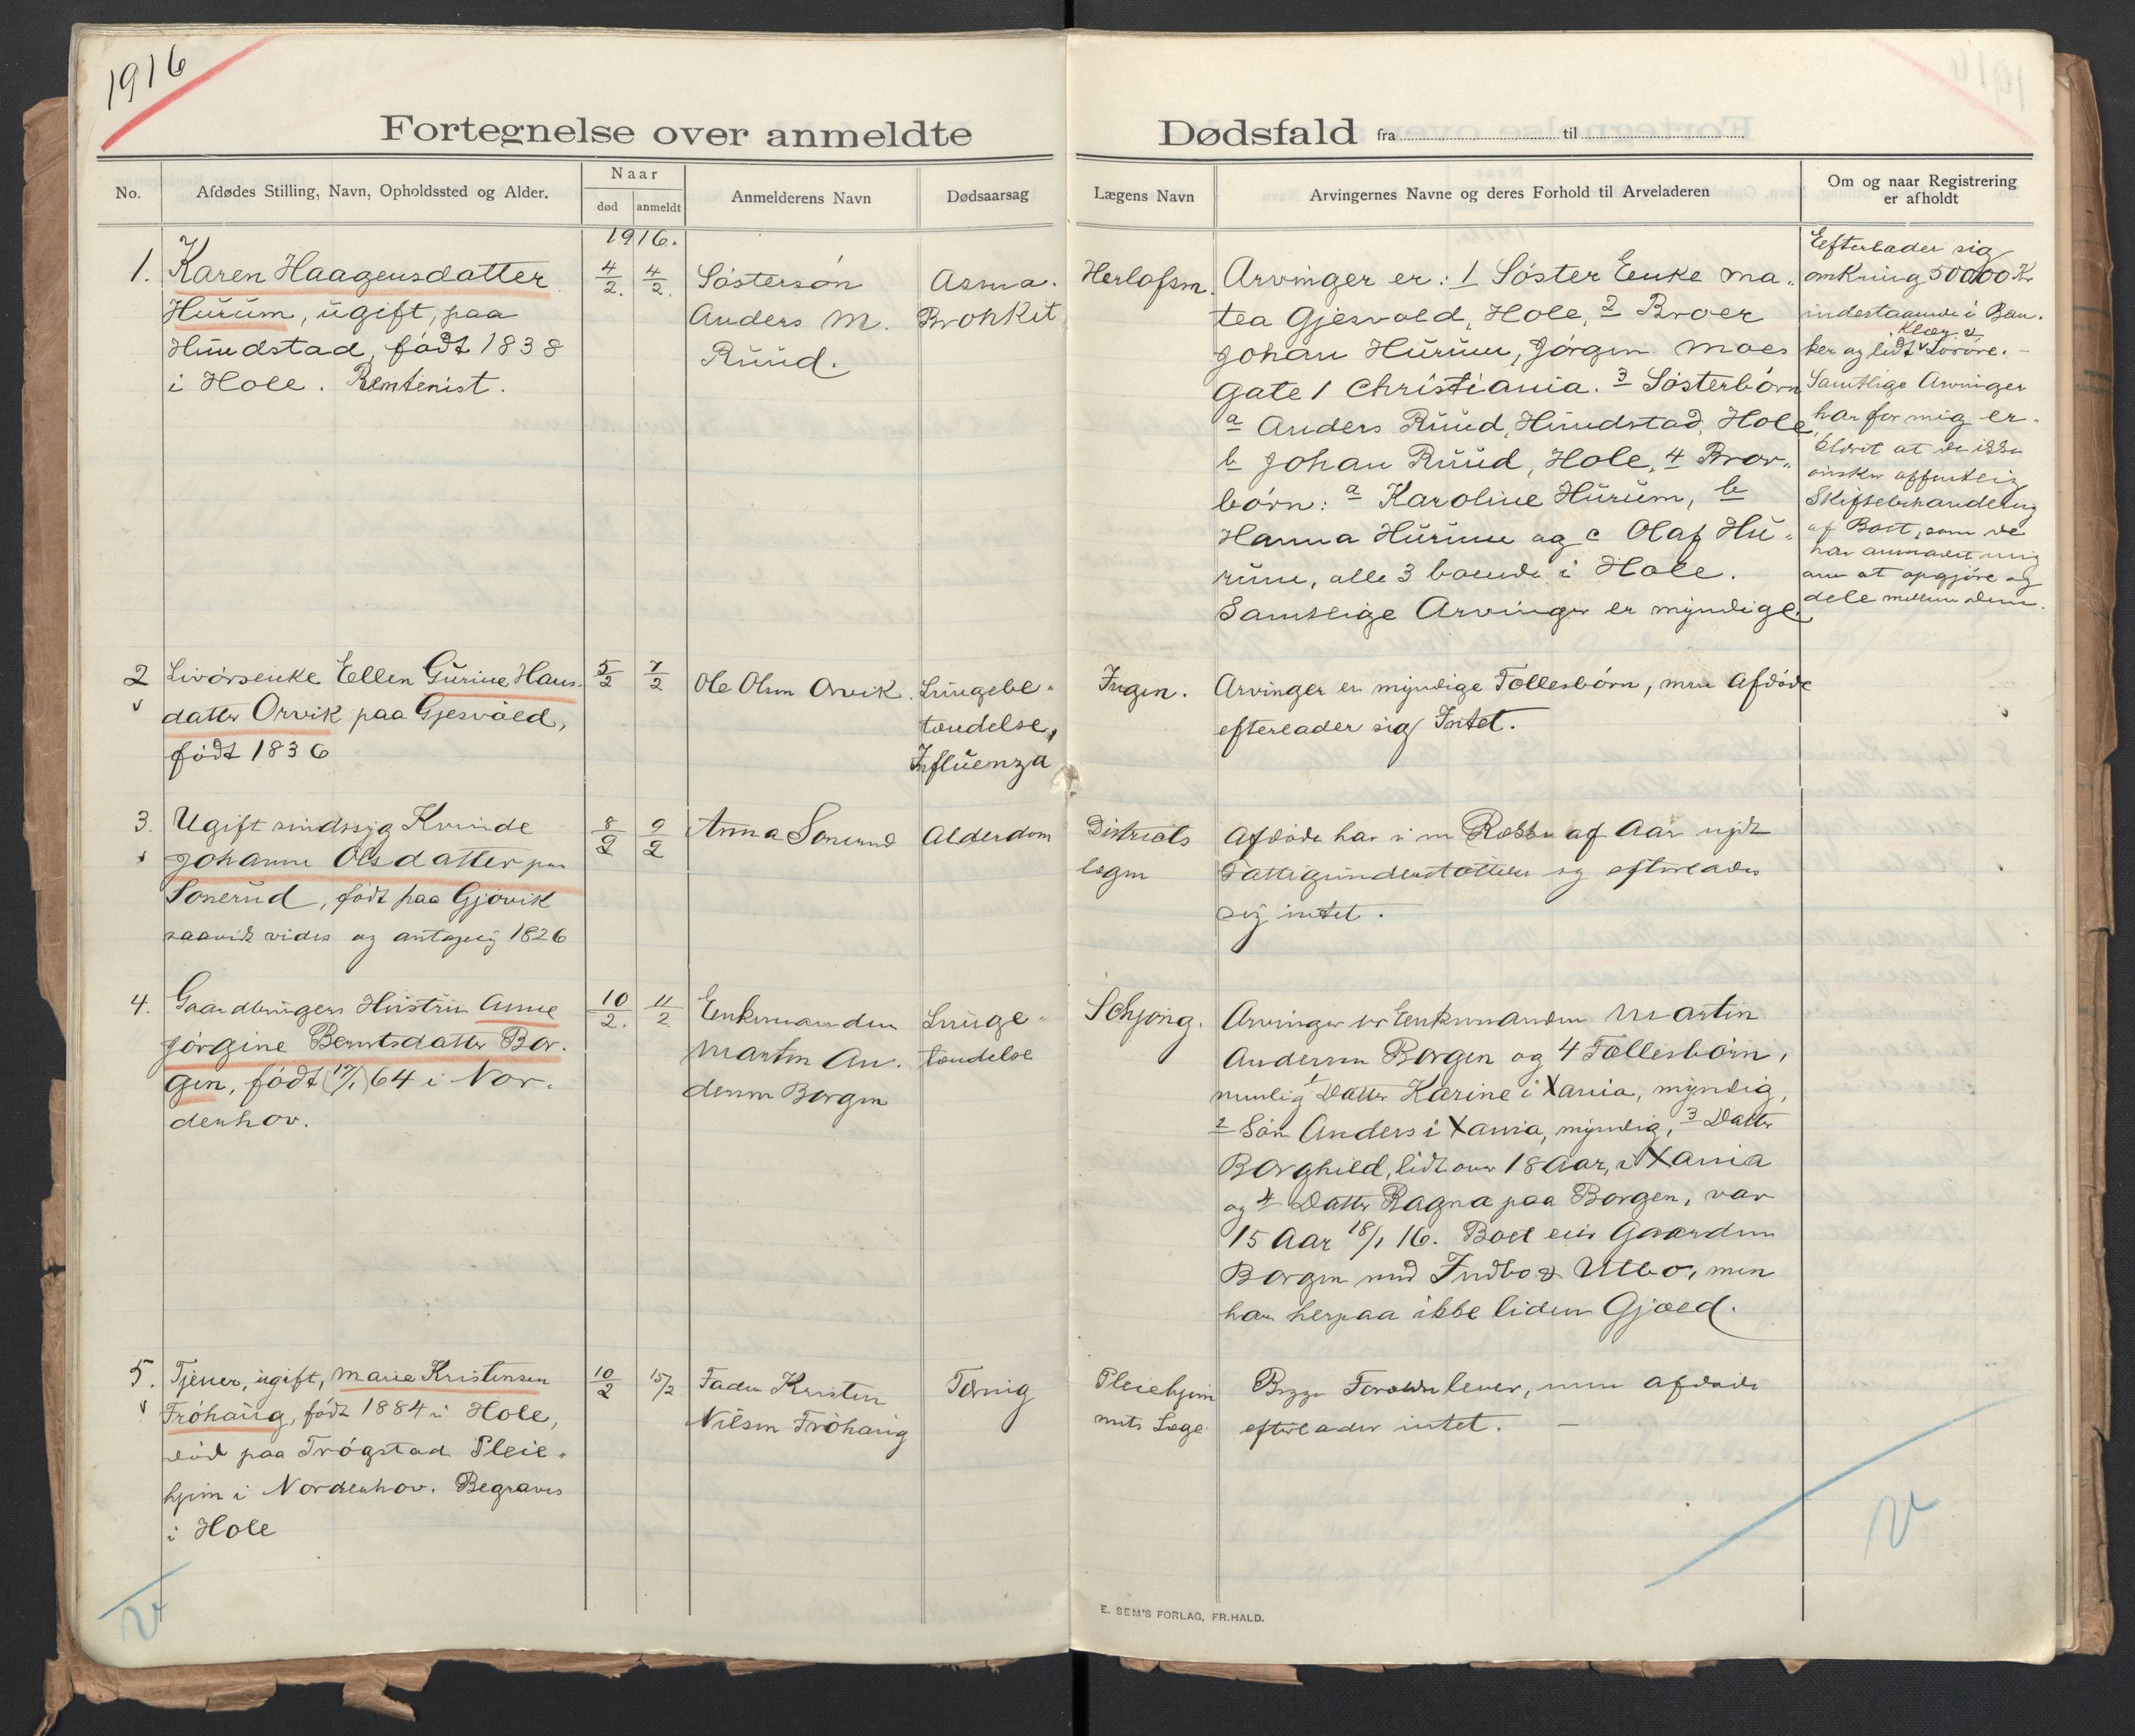 1916
Fortegnelse over anmeldte Dødsfald fra til
No.
Afdødes Stilling, Navn, Opholdssted og Alder.
Naar
død
anmeldt
Anmelderens Navn
Dødsaarsag
Lægens Navn
Arvingernes Navne og deres Forhold til Arveladeren
Om og naar Registrering
er afholdt
1916.
1.
Karen Haagensdatter
Hurum, ugift, paa
Hundstad, født 1838
i Hole. Rentenist.
4/2.
4/2.
Søstersøn
Anders M.
Ruud.
Asma.
Bronkit
Herlofsen.
Arvinger er: 1 Søster Enke Ma„
tea Gjesvold, Hole, 2 Broer
Johan Hurum, Jørgen Moes
Gate 1 Christiania. 3 Søsterbørn
a Anders Ruud, Hundstad, Hole,
b Johan Ruud, Hole, 4 Bror„
børn: a Karoline Hurum, b
Hanna Hurum og c Olaf Hu„
rum, alle 3 boende i Hole.
Samtlige Arvinger er myndige.
Efterlader sig
omkring 50000 Kr
indestaaende i Ban.
Klær &
ker og lidt Løsøre. -
Samtlige Arvinger
har for mig er„
klæret at de ikke
ønsker offentlig
Skiftebehandling
af Boet, som de
har anmodet mig
om at opgjøre og
dele mellem dem.
2
v
Livørsenke Ellen Gurine Hans„
datter Orvik paa Gjesvold,
født 1836
5/2
7/2
Ole Olsen Orvik.
Lungebe„
tændelse,
Influenza
Ingen.
Arvinger er myndige Fællesbørn, men Afdøde
efterlader sig Intet.
3.
v
Ugift sindssyg Kvinde
Johanne Olsdatter paa
Sonerud, født paa Gjøvik
saavidt vides og antagelig 1826
8/2
9/2
Anna Sonerud
Alderdom
Distrikts
lægen
Afdøde har i en Række af Aar nydt
Fattigunderstøttelse og efterlader
sig intet.
4.
Gaardbrugers Hustru Anne
Jørgine Berntsdatter Bor„
gen, født (17/1) 64 i Nor„
denhov.
10/2.
11/2
Enkemanden
Martin An„
dersen Borgen
Lunge„
tændelse
Schjong.
Arvinger er Enkemanden Martin
Andersen Borgen og 4 Fællesbørn,
nemlig 1 Datter Karine i Xania, myndig,
2 Søn Anders i Xania, myndig, 3 Datter
Borghild, lidt over 18 Aar, i Xania
og 4 Datter Ragna paa Borgen, var
15 Aar 18/1 16. Boet eier Gaarden
Borgen med Indbo & Utbo, men
har herpaa ikke liden Gjæld.
5.
v
Tjener, ugift, Marie Kristensen
Frøhaug, født 1884 i Hole,
død paa Trøgstad Pleie„
hjem i Nordenhov. Begraves
i Hole
10/2
15/2
Fader Kristen
Nilsen Frøhaug
Tæring
Pleiehjem
mets Læge
Begge Forældre lever, men Afdøde
efterlader intet. -
E. SEM'S FORLAG, FR.HALD.